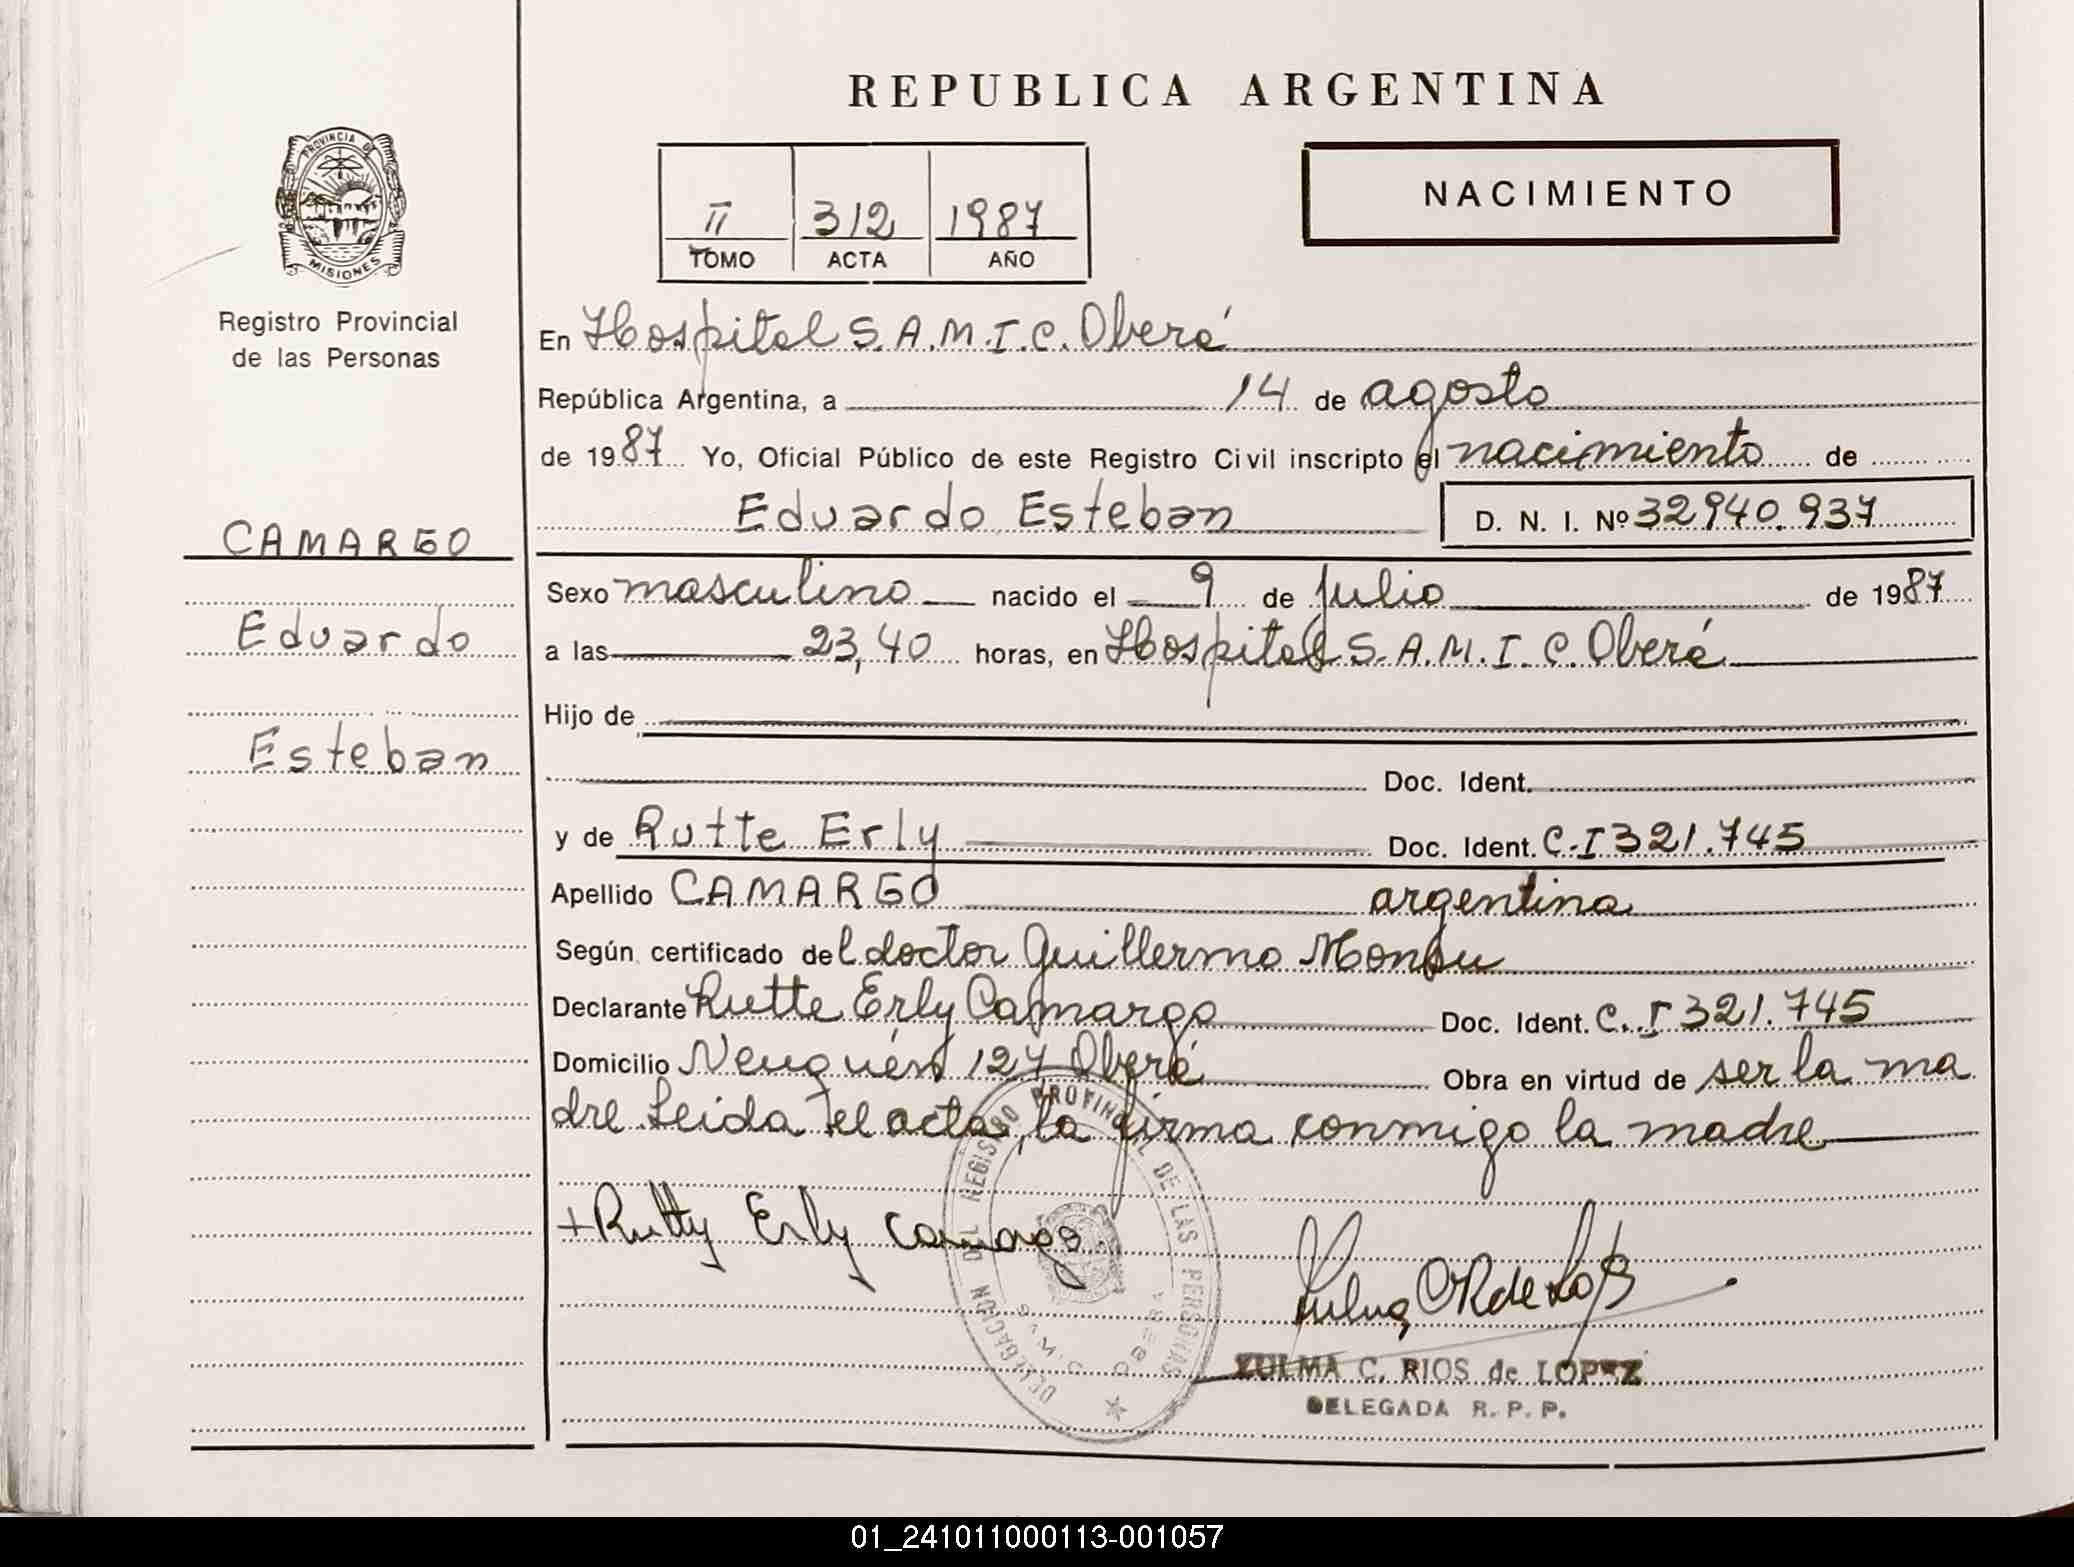 REPUBLICA ARGENTINA
PROVINCIA DE
MISIONES
Registro Provincial
de las Personas
II 312 1987
TOMO ACTA AÑO
NACIMIENTO
En Hospital S.A.M.I.C. Oberá
República Argentina, a 14 de agosto
de 1987 Yo, Oficial Público de este Registro Civil inscripto el nacimiento de
Eduardo Esteban D. N. I. Nº 32940.937
CAMARGO
Eduardo
Esteban
Sexo masculino nacido el 9 de julio de 1987
a las 23,40 horas, en Hospital S.A.M.I.C. Oberá
Hijo de
Doc. Ident.
y de Rutte Erly Doc. Ident. C.I 321.745
Apellido CAMARGO argentina
Según certificado del doctor Guillermo
Declarante Rutte Erly Camargo Doc. Ident. C.I 321.745
Domicilio Neuquén 127 Oberá Obra en virtud de ser la ma
dre Leida el acta, la firma conmigo la madre
+Rutty Erly Camargo
DELEGACION DEL REGISTRO PROVINCIAL DE LAS PERSONAS
SAMIC OBERA
ZULMA C. RIOS de LOPEZ
DELEGADA R. P. P.
01_241011000113-001057